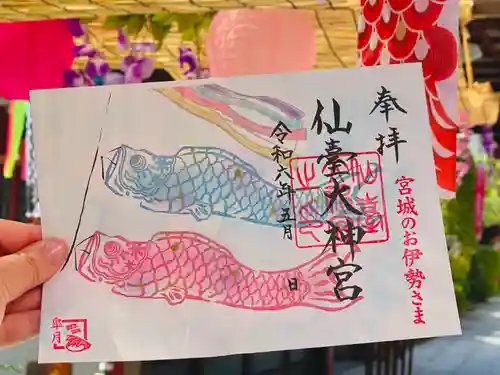 奉拝
宮城のお伊勢さま
仙臺大神宮
令和八年五月
日
皐月